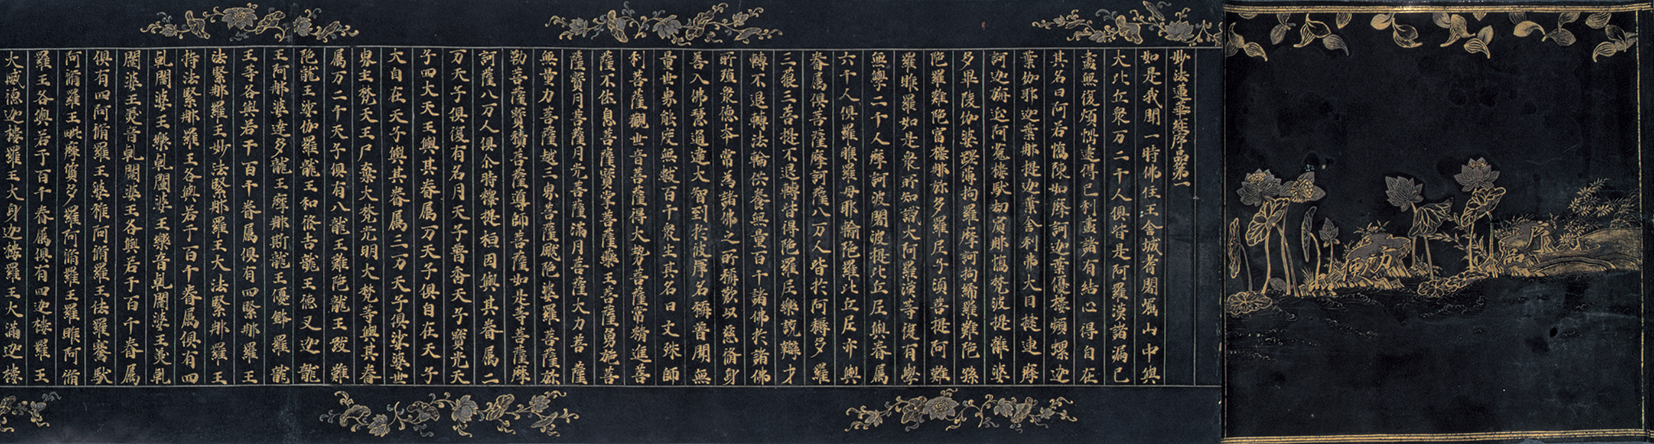 妙法蓮華經序品第一
如是我聞一時佛住王舍城耆闍崛山中與
大比丘衆万二千人俱皆是阿羅漢諸漏已
盡無復煩惱逮得己利盡諸有結心得自在
其名曰阿若憍陳如摩訶迦葉優樓頻螺迦
葉伽耶迦葉那提迦葉舍利弗大目揵連摩
訶迦旃延阿㝹樓馱劫賓那憍梵波提離婆
多畢陵伽婆蹉薄拘羅摩訶拘絺羅難陁孫
陁羅難陁富樓那弥多羅尼子須菩提阿難
羅睺羅如是衆所知識大阿羅漢等復有學
無學二千人摩訶波闍波提比丘尼與眷属
六千人俱羅睺羅母耶輸陁羅比丘尼亦與
眷属俱菩薩摩訶薩八万人皆於阿耨多羅
三藐三菩提不退轉皆得陁羅尼樂說辯才
轉不退轉法輪供養無量百千諸佛於諸佛
所殖衆德本常為諸佛之所稱歎以慈修身
善入佛慧通達大智到於彼岸名稱普聞無
量世界能度無數百千衆生其名曰文殊師
利菩薩觀世音菩薩得大勢菩薩常精進菩
薩不休息菩薩寶掌菩薩藥王菩薩勇施菩
薩寶月菩薩月光菩薩滿月菩薩大力菩薩
無量力菩薩越三界菩薩颰陁婆羅菩薩弥
勒菩薩寶積菩薩導師菩薩如是等菩薩摩
訶薩八万人俱尒時釋提桓因與其眷属二
万天子俱復有名月天子普香天子寶光天
子四大天王與其眷属万天子俱自在天子
大自在天子與其眷属三万天子俱娑婆世
界主梵天王尸棄大梵光明大梵等與其眷
属万二千天子俱有八龍王難陁龍王跋難
陁龍王娑伽羅龍王和修吉龍王德叉迦龍
王阿那婆達多龍王摩那斯龍王優鉢羅龍
王等各與若干百千眷属俱有四緊那羅王
法緊那羅王妙法緊那羅王大法緊那羅王
持法緊那羅王各與若干百千眷属俱有四
乹闥婆王樂乹闥婆王樂音乹闥婆王美乹
闥婆王美音乹闥婆王各與若干百千眷属
俱有四阿修羅王婆稚阿修羅王佉羅騫馱
阿修羅王毗摩質多羅阿修羅王羅睺阿修
羅王各與若干百千眷属俱有四迦樓羅王
大威德迦樓羅王大身迦樓羅王大滿迦樓